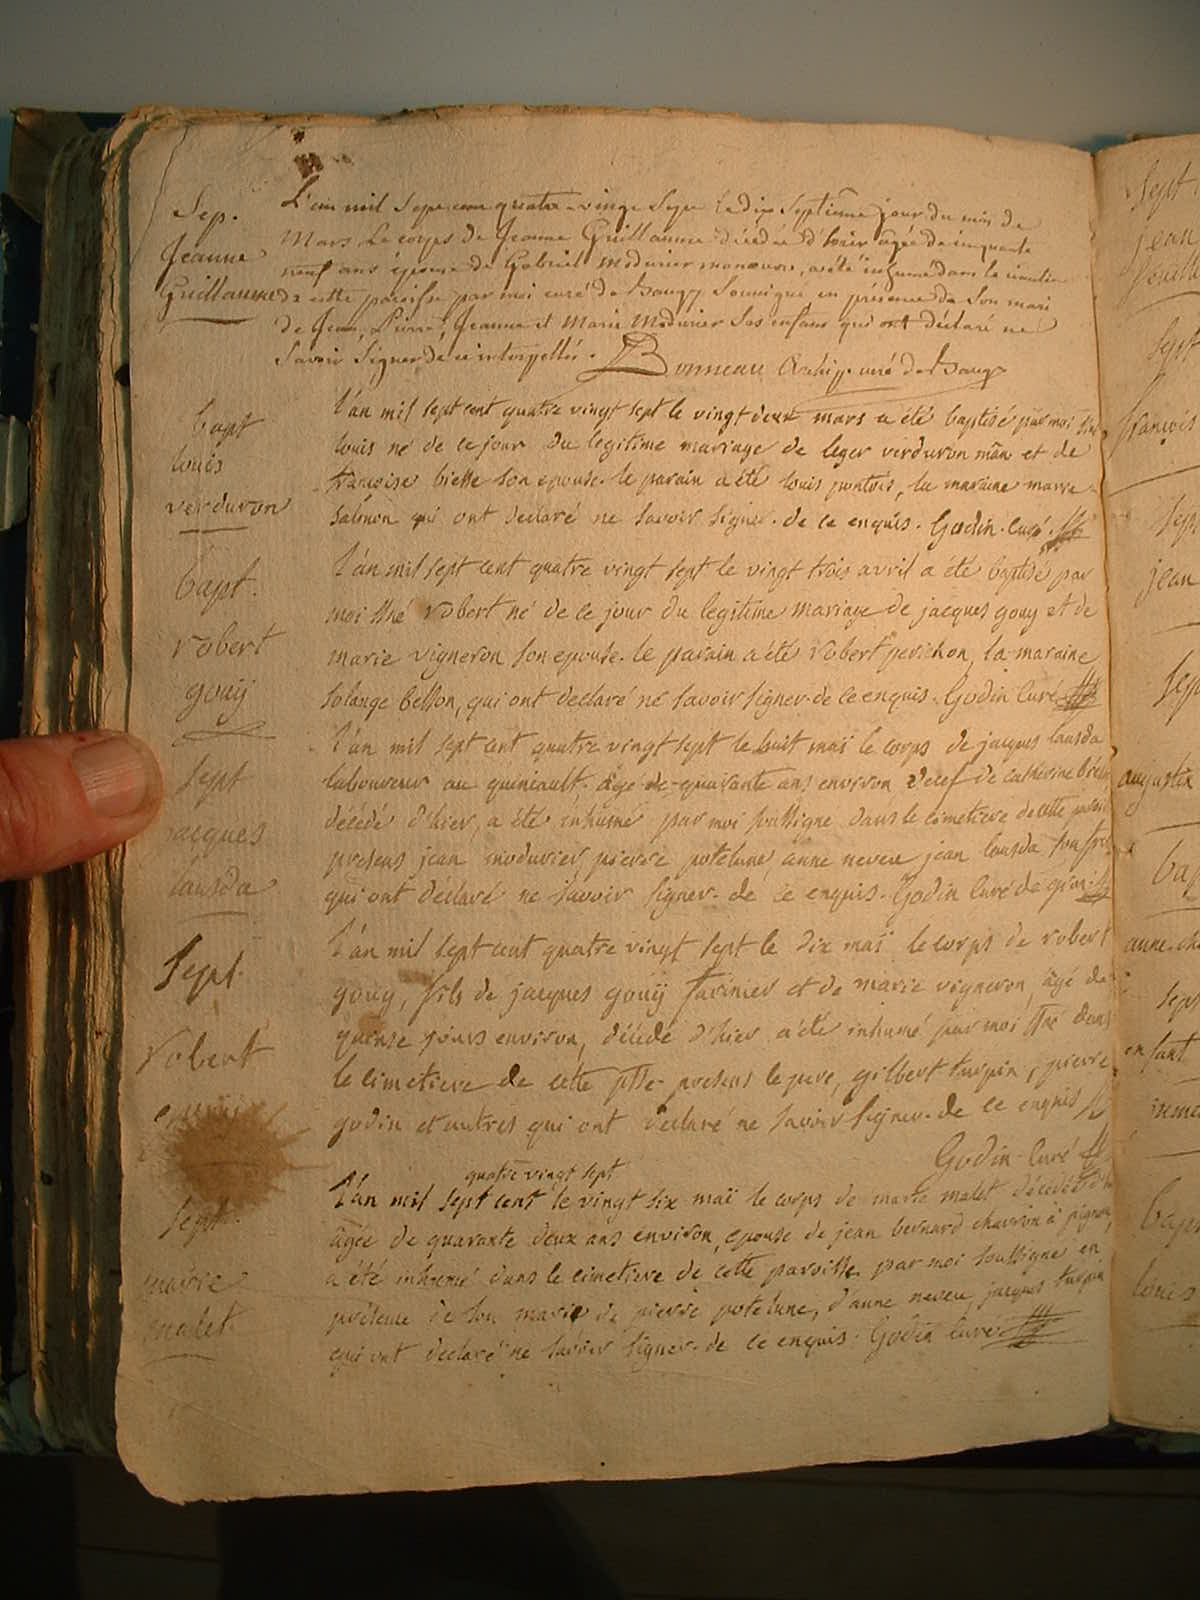 Sep.
Jeanne
Guillaume
L'an mil Sept cent quatre-vingt Sept le dix Septieme jour du mois de
Mars Le corps de Jeanne Guillaume décédée d'hier agée de cinquante
neuf ans épouse de Gabriel Moduvier manoeuvre, a été inhumé dans le cimetiere
de cette paroisse par moi curé de Baugy Soussigné en présence de Son mari
de Jean, Pierre, Jeanne et Marie Moduvier Ses enfans qui ont déclaré ne
Savoir Signer de ce interpellés. Bonneau Archip. curé de Baugy
bapt
louis
verduron
l'an mil sept cent quatre vingt sept le vingt deux mars a été baptisé par moi Sné
louis né de ce jour du legitime mariage de leger verduron man et de
francoise biesse son epouse. le parain a été louis pontois, la maraine marie
salmon qui ont declaré ne savoir signer. de ce enquis. Godin. Curé
bapt.
robert
gouÿ
l'an mil sept cent quatre vingt sept le vingt trois avril a été baptisé par
moi sné robert né de ce jour du legitime mariage de jacques gouy et de
marie vigneron son epouse. le parain a été robert perichon, la maraine
solange besson, qui ont declaré ne savoir signer. de ce enquis. Godin Curé
sept
jacques
lausda
l'an mil sept cent quatre vingt sept le huit maï le corps de jacques lausda
laboureur au queniault, age de quarante ans environ veuf de catherine
décédé d'hier, a été inhumé par moi soussigne dans le cimetiere de cette
presens jean moduvier, pierre potelune, anne neveu jean lausda
qui ont déclaré ne savoir signer. de ce enquis. Godin Curé de
Sept.
Robert
l'an mil sept cent quatre vingt sept le dix maï le corps de robert
gouy, fils de jacques gouÿ farinier et de marie vigneron, âgé de
quinse jours environ, décédé d'hier a été inhumé par moi sné dans
le cimetiere de cette psse. presens le pere, gilbert turpin, pierre
godin et autres qui ont declaré ne savoir signer. de ce enquis
Godin Curé
sept.
marie
malet.
quatre vingt sept
l'an mil sept cent le vingt six maï le corps de marie malet décédée
âgée de quarante deux ans environ, epouse de jean bernard charron à
a été inhumé dans le cimetiere de cette paroisse par moi soussigne en
présence de son marie de pierre potelune, d'anne neveu, jacques turpin
qui ont declaré ne savoir signer. de ce enquis. Godin Curé
sept
jean
sept
françois
sep
jean
sep
augustin
bap
anne
sept
enfant
bap
louis